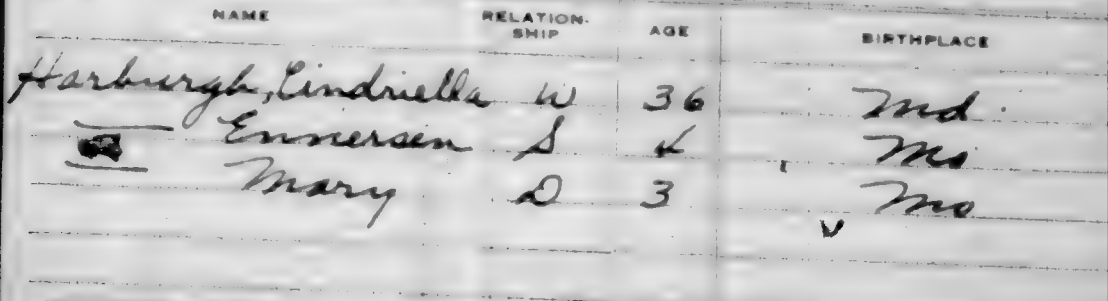 NAME RELATION-SHIP AGE BIRTHPLACE
Harburgh, Cindriella W 36 Md.
Ennersen S 4 Mo
Mary D 3 Mo